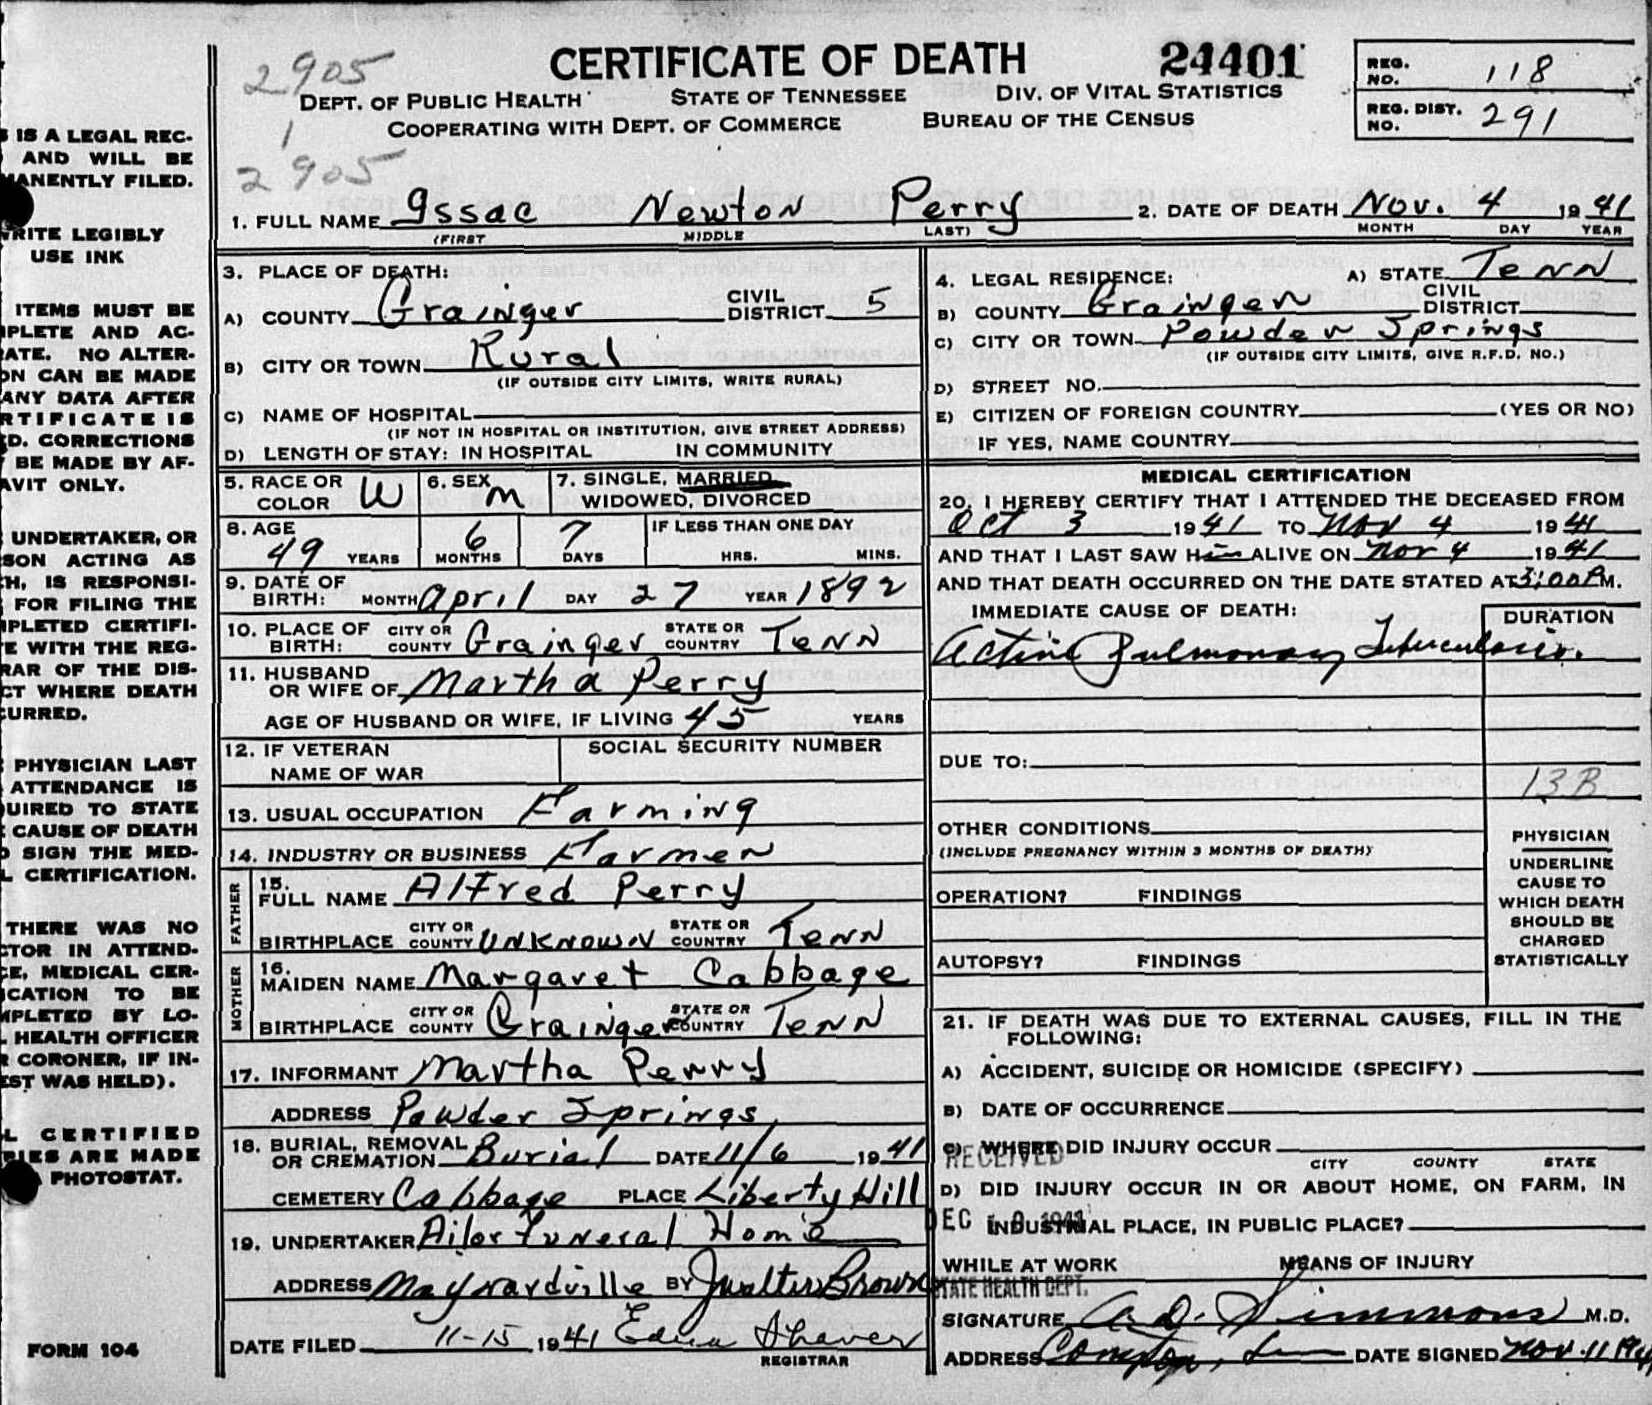 2905
CERTIFICATE OF DEATH
24401
REG. NO. 118
DEPT. OF PUBLIC HEALTH STATE OF TENNESSEE DIV. OF VITAL STATISTICS
REG. DIST. NO. 291
COOPERATING WITH DEPT. OF COMMERCE BUREAU OF THE CENSUS
1
2905
1. FULL NAME Issac Newton Perry 2. DATE OF DEATH Nov. 4 1941
(FIRST MIDDLE LAST) MONTH DAY YEAR
3. PLACE OF DEATH:
A) COUNTY Grainger CIVIL DISTRICT 5
B) CITY OR TOWN Rural
(IF OUTSIDE CITY LIMITS, WRITE RURAL)
C) NAME OF HOSPITAL
(IF NOT IN HOSPITAL OR INSTITUTION, GIVE STREET ADDRESS)
D) LENGTH OF STAY: IN HOSPITAL IN COMMUNITY
4. LEGAL RESIDENCE: A) STATE Tenn
B) COUNTY Grainger CIVIL DISTRICT
C) CITY OR TOWN Powder Springs
(IF OUTSIDE CITY LIMITS, GIVE R.F.D. NO.)
D) STREET NO.
E) CITIZEN OF FOREIGN COUNTRY (YES OR NO)
IF YES, NAME COUNTRY
5. RACE OR COLOR W 6. SEX M 7. SINGLE, MARRIED WIDOWED, DIVORCED
8. AGE 49 YEARS 6 MONTHS 7 DAYS IF LESS THAN ONE DAY HRS. MINS.
9. DATE OF BIRTH: MONTH April DAY 27 YEAR 1892
10. PLACE OF BIRTH: CITY OR COUNTY Grainger STATE OR COUNTRY Tenn
11. HUSBAND OR WIFE OF Martha Perry
AGE OF HUSBAND OR WIFE, IF LIVING 45 YEARS
12. IF VETERAN NAME OF WAR SOCIAL SECURITY NUMBER
13. USUAL OCCUPATION Farming
14. INDUSTRY OR BUSINESS Farmer
FATHER
15. FULL NAME Alfred Perry
BIRTHPLACE CITY OR COUNTY Unknown STATE OR COUNTRY Tenn
MOTHER
16. MAIDEN NAME Margaret Cabbage
BIRTHPLACE CITY OR COUNTY Grainger STATE OR COUNTRY Tenn
17. INFORMANT Martha Perry
ADDRESS Powder Springs
18. BURIAL, REMOVAL OR CREMATION Burial DATE 11/6 1941
CEMETERY Cabbage PLACE Liberty Hill
19. UNDERTAKER Ailor Funeral Home
ADDRESS Maynardville BY J Walter Brown
DATE FILED 11-15 1941 Edna Shaver
REGISTRAR
MEDICAL CERTIFICATION
20. I HEREBY CERTIFY THAT I ATTENDED THE DECEASED FROM
Oct 3 1941 TO Nov 4 1941
AND THAT I LAST SAW Him ALIVE ON Nov 4 1941
AND THAT DEATH OCCURRED ON THE DATE STATED AT 3:00 P M.
IMMEDIATE CAUSE OF DEATH: DURATION
Active Pulmonary Tuberculosis.
DUE TO:
13B
OTHER CONDITIONS
(INCLUDE PREGNANCY WITHIN 3 MONTHS OF DEATH)
OPERATION? FINDINGS
AUTOPSY? FINDINGS
PHYSICIAN
UNDERLINE
CAUSE TO
WHICH DEATH
SHOULD BE
CHARGED
STATISTICALLY
21. IF DEATH WAS DUE TO EXTERNAL CAUSES, FILL IN THE
FOLLOWING:
A) ACCIDENT, SUICIDE OR HOMICIDE (SPECIFY)
B) DATE OF OCCURRENCE
C) WHERE DID INJURY OCCUR
CITY COUNTY STATE
RECEIVED
D) DID INJURY OCCUR IN OR ABOUT HOME, ON FARM, IN
INDUSTRIAL PLACE, IN PUBLIC PLACE?
DEC 1941
WHILE AT WORK MEANS OF INJURY
STATE HEALTH DEPT.
SIGNATURE A. D. Simmons M.D.
ADDRESS DATE SIGNED Nov. 11 1941
S IS A LEGAL REC-
AND WILL BE
MANENTLY FILED.
WRITE LEGIBLY
USE INK
ITEMS MUST BE
PLETE AND AC-
RATE. NO ALTER-
ON CAN BE MADE
ANY DATA AFTER
RTIFICATE IS
ED. CORRECTIONS
Y BE MADE BY AF-
AVIT ONLY.
UNDERTAKER, OR
SON ACTING AS
CH, IS RESPONSI-
FOR FILING THE
MPLETED CERTIFI-
E WITH THE REG-
RAR OF THE DIS-
CT WHERE DEATH
CURRED.
PHYSICIAN LAST
ATTENDANCE IS
QUIRED TO STATE
E CAUSE OF DEATH
D SIGN THE MED-
L CERTIFICATION.
THERE WAS NO
CTOR IN ATTEND-
CE, MEDICAL CER-
ICATION TO BE
MPLETED BY LO-
L HEALTH OFFICER
R CORONER, IF IN-
EST WAS HELD).
L CERTIFIED
PIES ARE MADE
PHOTOSTAT.
FORM 104